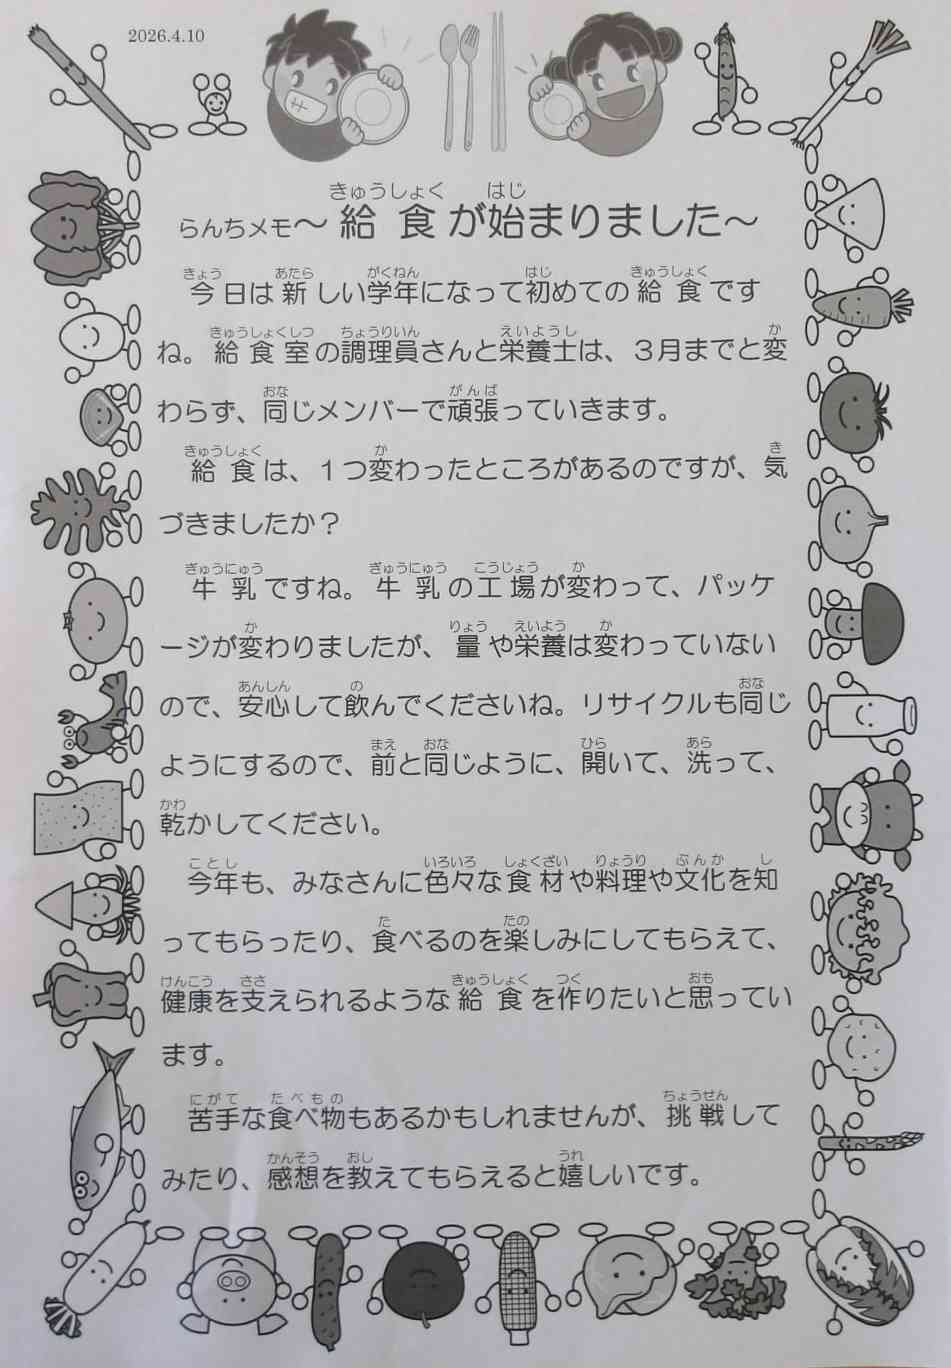 2026.4.10
らんちメモ～給食が始まりました～
今日は新しい学年になって初めての給食です
ね。給食室の調理員さんと栄養士は、３月までと変
わらず、同じメンバーで頑張っていきます。
給食は、１つ変わったところがあるのですが、気
づきましたか？
牛乳ですね。牛乳の工場が変わって、パッケ
ージが変わりましたが、量や栄養は変わっていない
ので、安心して飲んでくださいね。リサイクルも同じ
ようにするので、前と同じように、開いて、洗って、
乾かしてください。
今年も、みなさんに色々な食材や料理や文化を知
ってもらったり、食べるのを楽しみにしてもらえて、
健康を支えられるような給食を作りたいと思ってい
ます。
苦手な食べ物もあるかもしれませんが、挑戦して
みたり、感想を教えてもらえると嬉しいです。